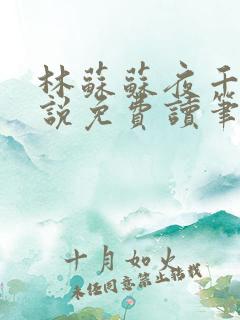 林蘇蘇夜千
說免費讀筆
十月如火
未經同意禁止轉載